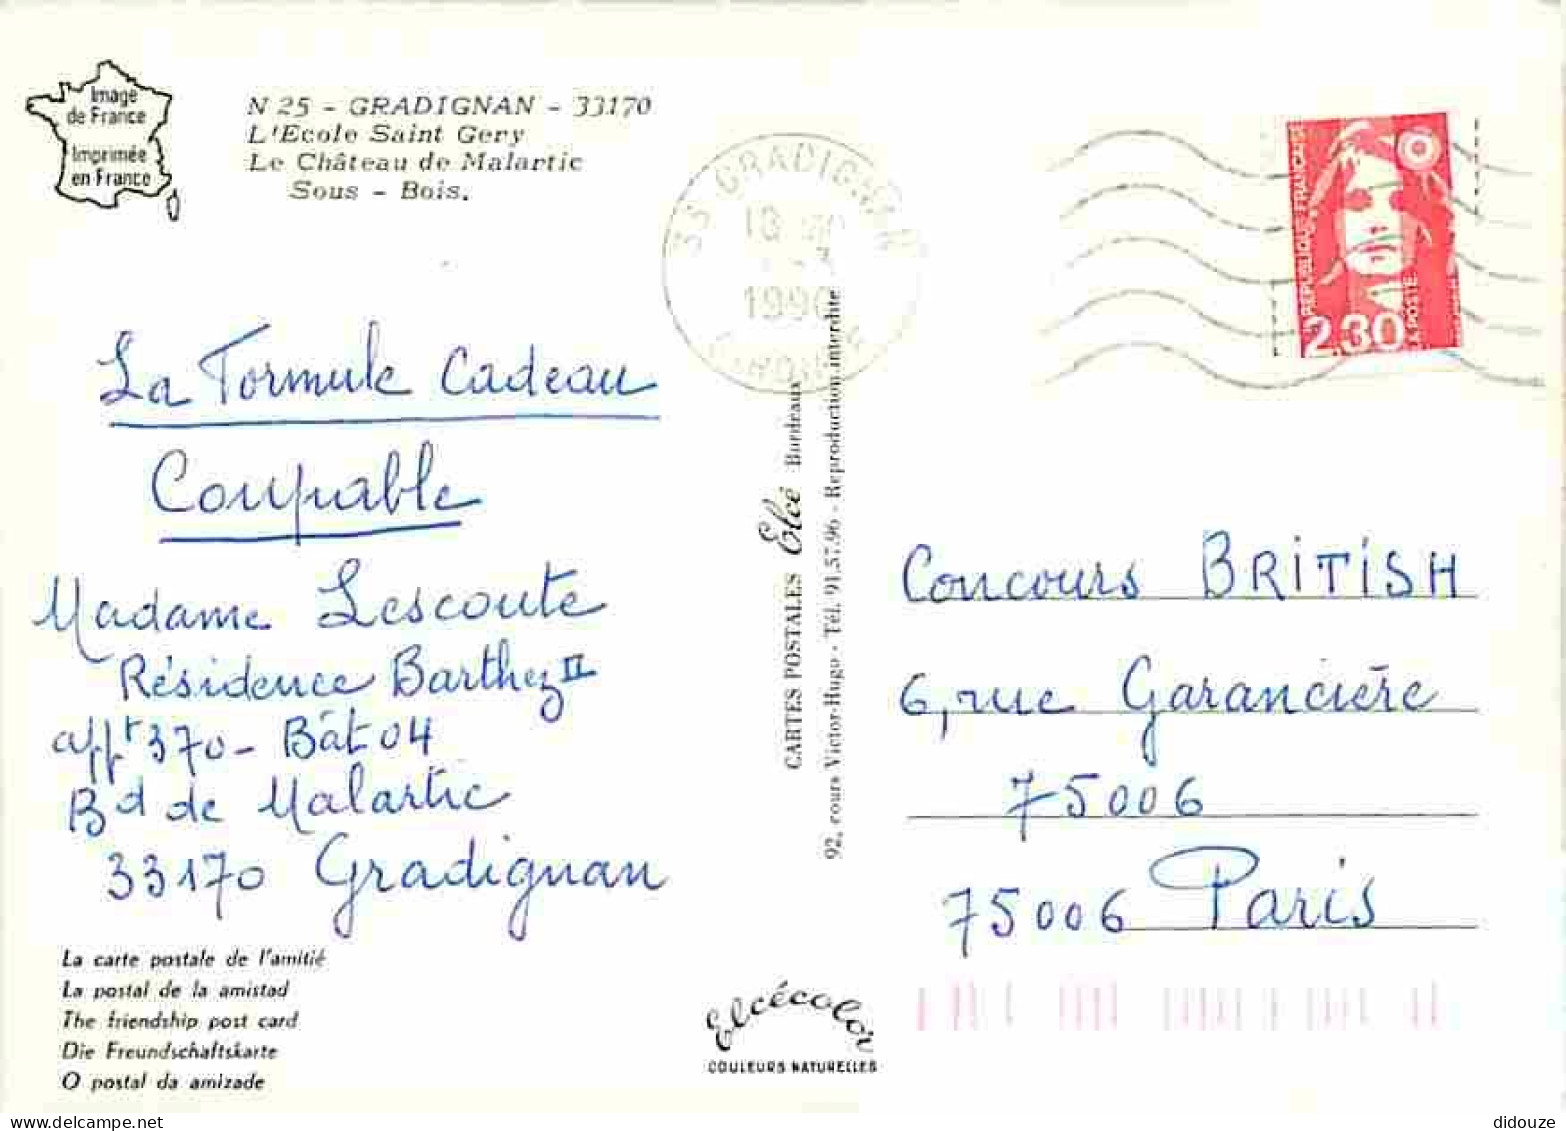 Image
de France
Imprimée
en France
N 25 - GRADIGNAN - 33170
L'Ecole Saint Gery
Le Château de Malartic
Sous - Bois.
33 GRADIGNAN
18
1990
REPUBLIQUE FRANÇAISE
2,30
LA POSTE
La Formule Cadeau
Coupable
Madame Lescoute
Résidence Barthez II
appt 370 - Bât 04
Bd de Malartic
33170 Gradignan
La carte postale de l'amitié
La postal de la amistad
The friendship post card
Die Freundschaftskarte
O postal da amizade
CARTES POSTALES Elcé Bordeaux
92, cours Victor-Hugo - Tél. 91.57.96 - Reproduction interdite
Elcécolor
COULEURS NATURELLES
Concours BRITISH
6, rue Garancière
75006
75006 Paris
didouze